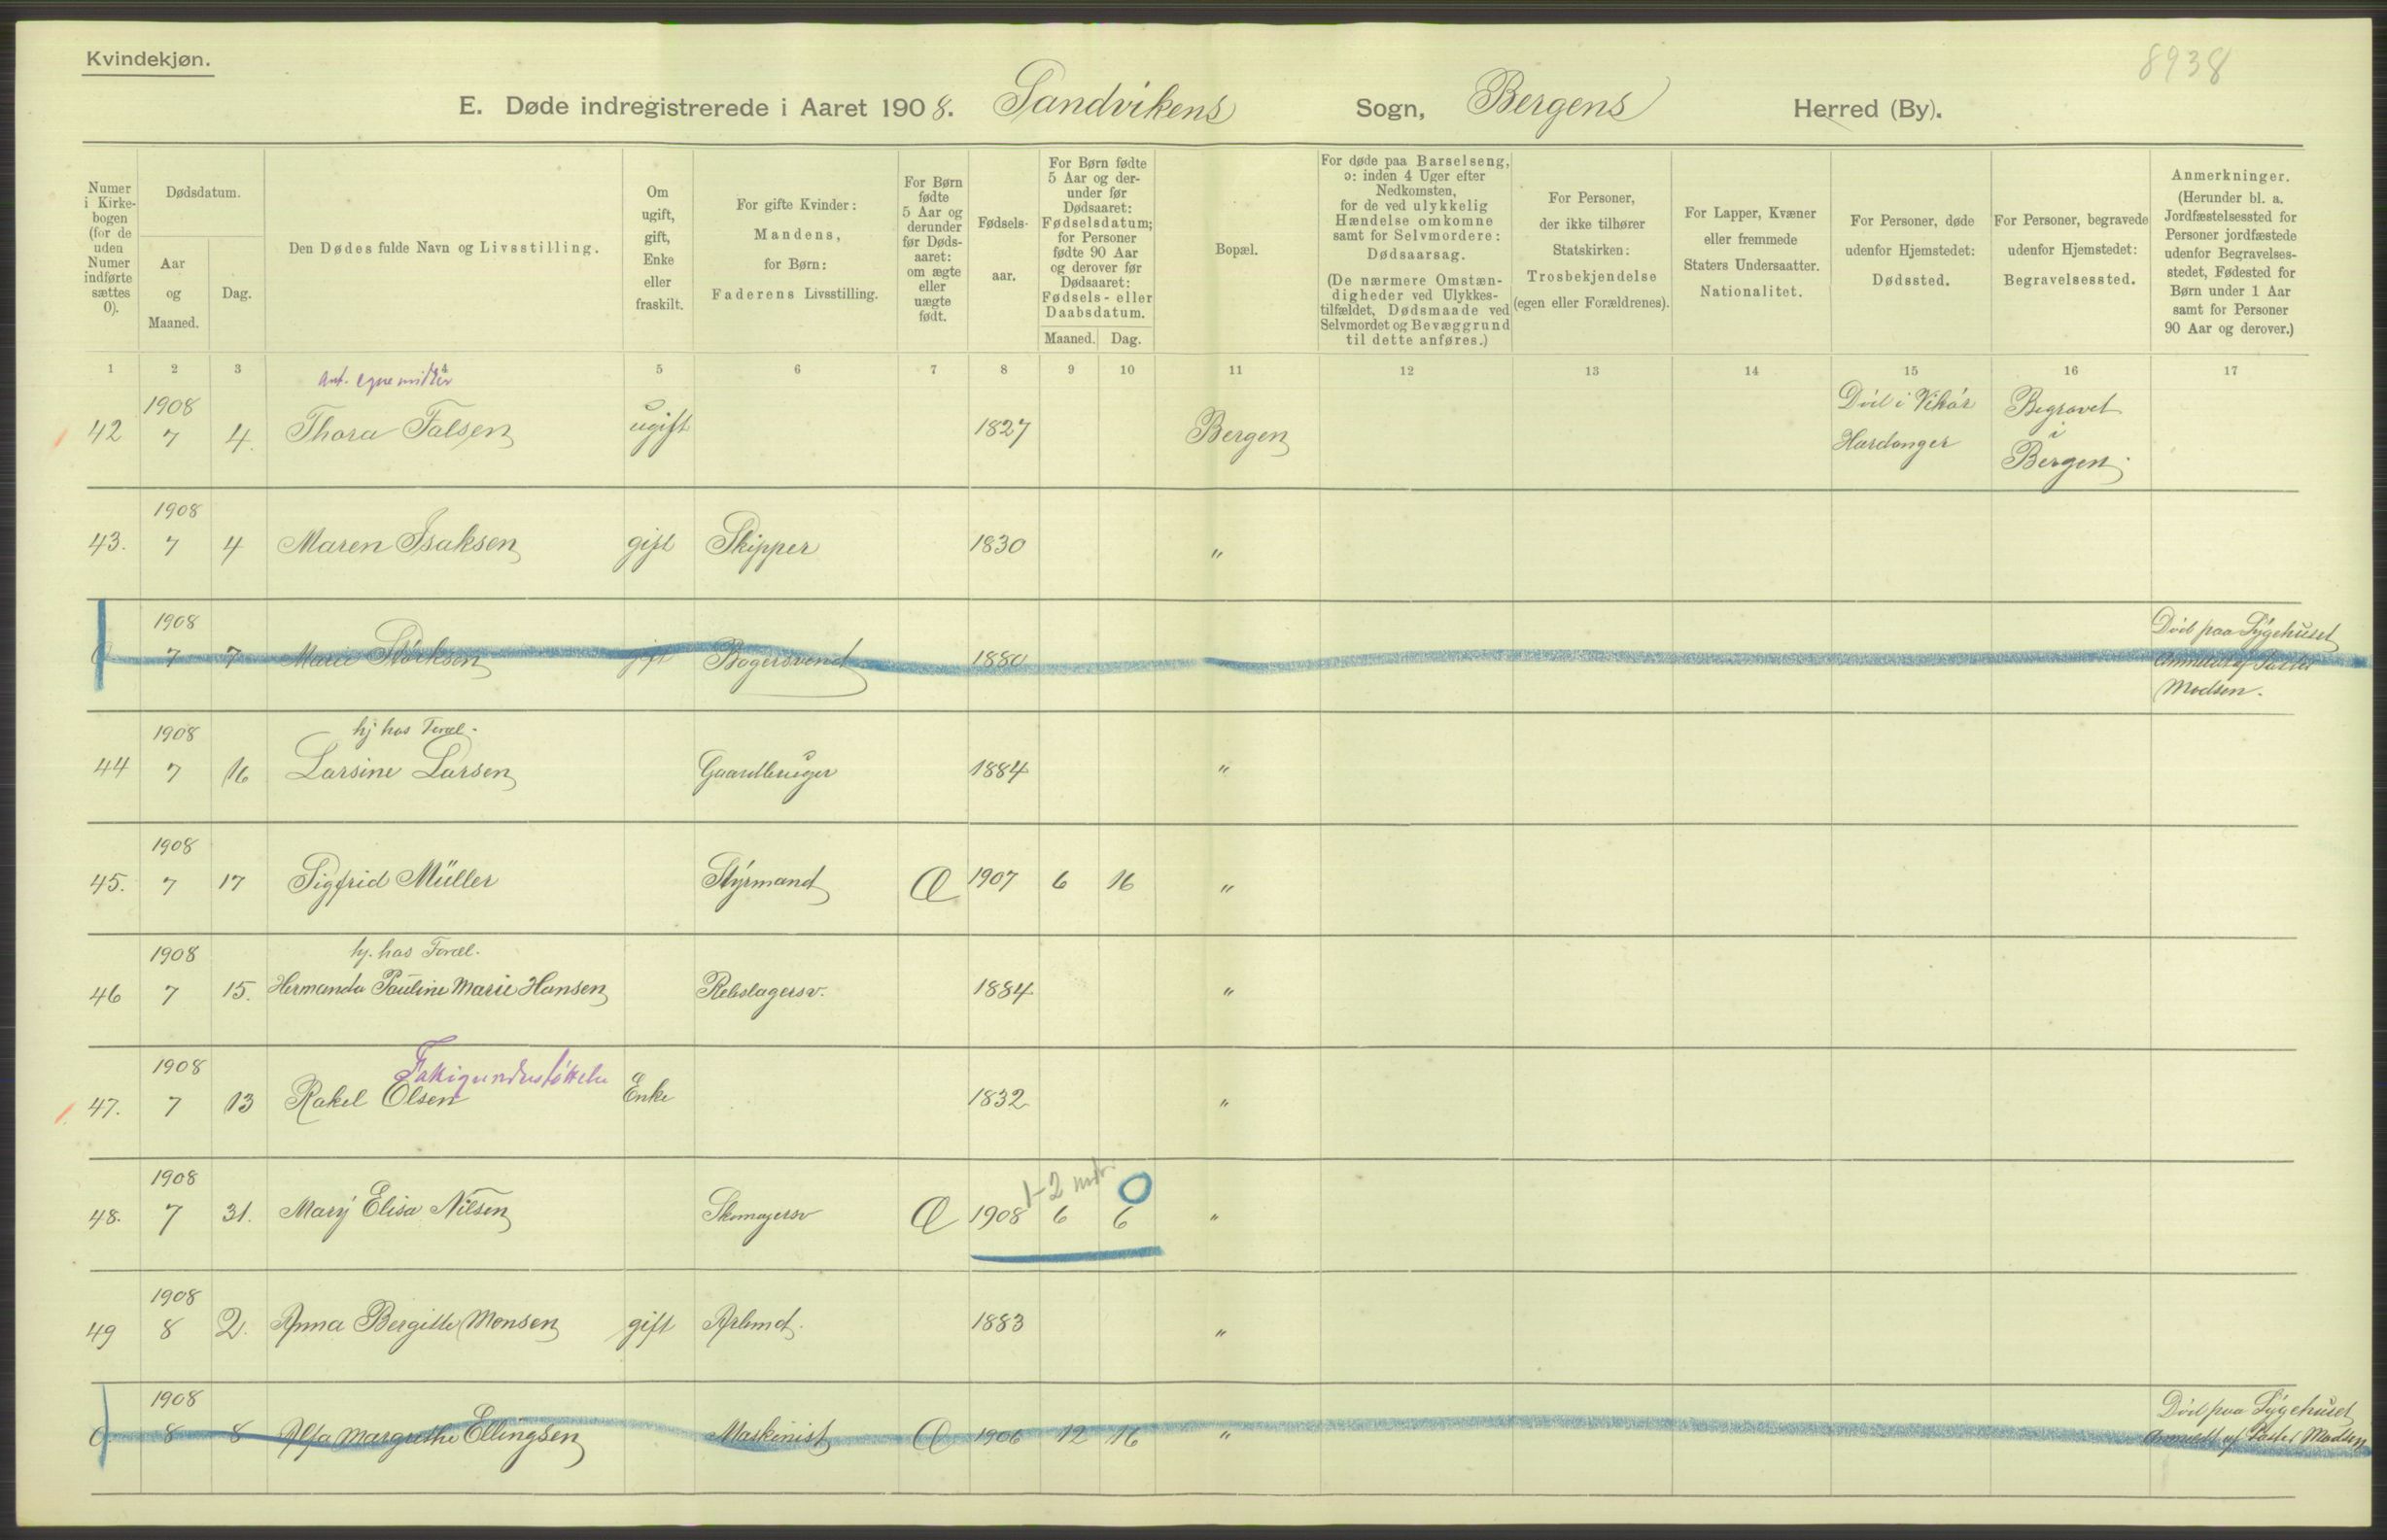 Kvindekjøn.
8938
E. Døde indregistrerede i Aaret 1908. Sandvikens Sogn, Bergens Herred (By).
Numer i Kirkebogen (for de uden Numer indførte sættes 0).
Dødsdatum.
Aar og Maaned.
Dag.
Den Dødes fulde Navn og Livsstilling.
Om ugift, gift, Enke eller fraskilt.
For gifte Kvinder: Mandens, for Børn: Faderens Livsstilling.
For Børn fødte 5 Aar og derunder før Dødsaaret: om ægte eller uægte født.
Fødselsaar.
For Børn fødte 5 Aar og derunder før Dødsaaret: Fødselsdatum; for Personer fødte 90 Aar og derover før Dødsaaret: Fødsels- eller Daabsdatum.
Maaned. Dag.
Bopæl.
For døde paa Barselseng, ɔ: inden 4 Uger efter Nedkomsten, for de ved ulykkelig Hændelse omkomne samt for Selvmordere: Dødsaarsag.
(De nærmere Omstændigheder ved Ulykkestilfældet, Dødsmaade ved Selvmordet og Bevæggrund til dette anføres.)
For Personer, der ikke tilhører Statskirken: Trosbekjendelse (egen eller Forældrenes).
For Lapper, Kvæner eller fremmede Staters Undersaatter. Nationalitet.
For Personer, døde udenfor Hjemstedet: Dødssted.
For Personer, begravede udenfor Hjemstedet: Begravelsessted.
Anmerkninger.
(Herunder bl. a. Jordfæstelsessted for Personer jordfæstede udenfor Begravelsesstedet, Fødested for Børn under 1 Aar samt for Personer 90 Aar og derover.)
1 2 3 4 5 6 7 8 9 10 11 12 13 14 15 16 17
egne midler
42 1908 7 4. Thora Falsen ugift 1827 Bergen Död i Vikör Hardanger Begravet i Bergen.
43. 1908 7 4 Maren Isaksen gift Skipper 1830 "
0 1908 7 7 Marie gift Bagersvend 1880 Död paa Sygehuset Anmeldt af Pastor Madsen.
hj. hos Foræl.
44 1908 7 16 Larsine Larsen Gaardbruger 1884 "
45. 1908 7 17 Sigfrid Müller Styrmand Æ 1907 6 16 "
hj. hos Foræl.
46 1908 7 15. Hermanda Pauline Marie Hansen Rebslagersv. 1884 "
Fattigunderstöttelse
47. 1908 7 13 Rakel Olsen Enke 1832 "
1-2 mdr. 0
48. 1908 7 31. Mary Elisa Nilsen Skomagersv Æ 1908 6 6 "
49 1908 8 2. Anna Bergitte Monsen gift Arbmd. 1883 "
0 1908 8 8 Alfa Margrethe Ellingsen Maskinist Æ 1906 12 16 " Död paa Sygehuset Anmeldt af Pastor Madsen